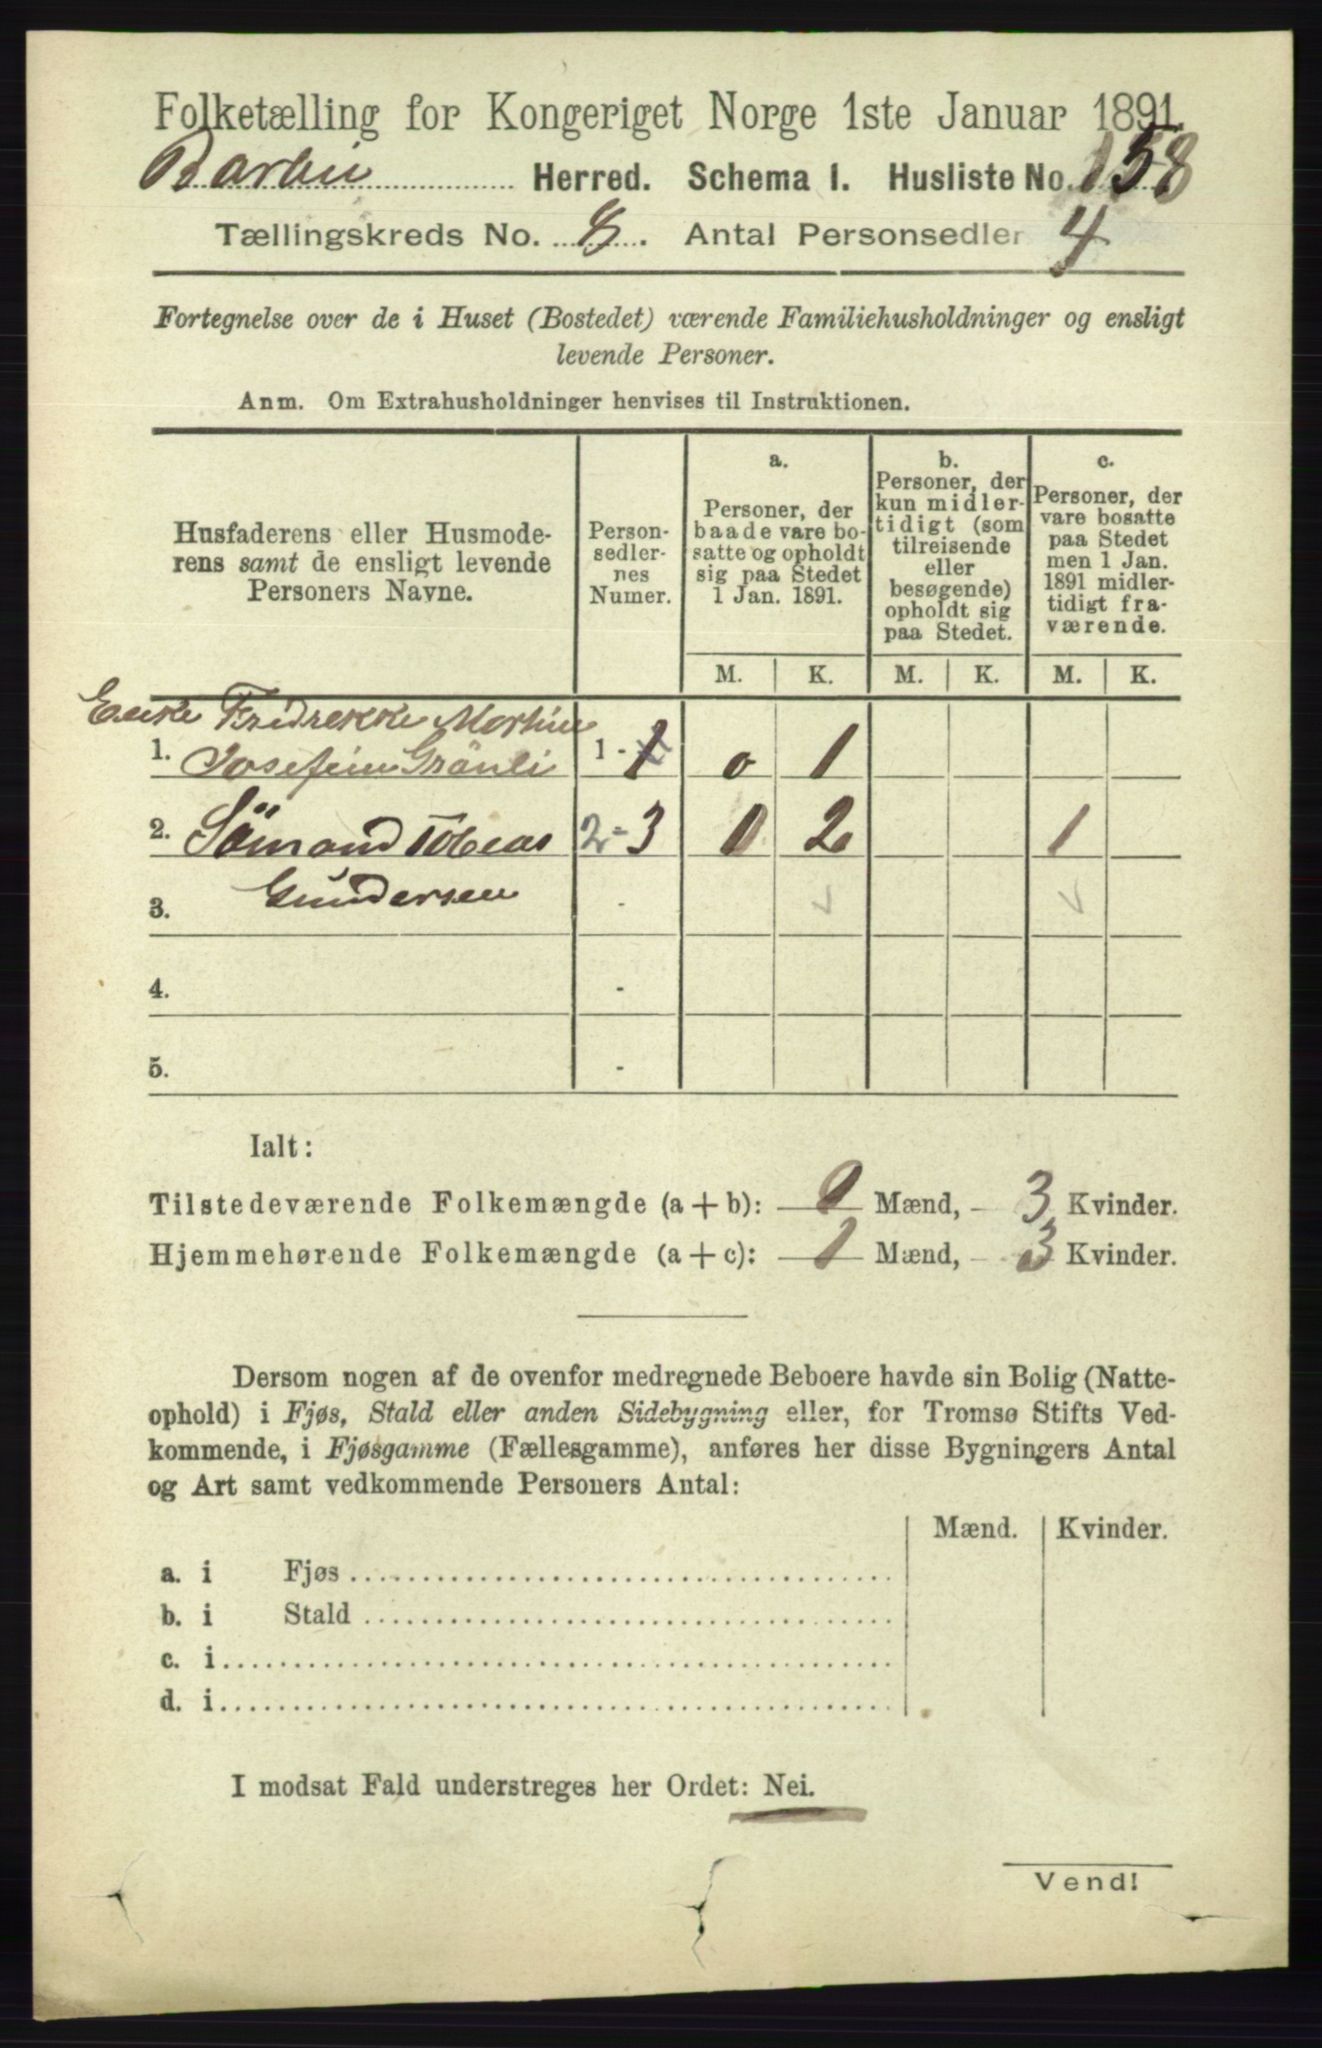 Folketælling for Kongeriget Norge 1ste Januar 1891.
Barbu Herred. Schema 1. Husliste No. 158
Tællingskreds No. 8. Antal Personsedler 4
Fortegnelse over de i Huset (Bostedet) værende Familiehusholdninger og ensligt
levende Personer.
Anm. Om Extrahusholdninger henvises til Instruktionen.
Husfaderens eller Husmode-
rens samt de ensligt levende
Personers Navne.
Person-
sedler-
nes
Numer.
a.
Personer, der
baade vare bo-
satte og opholdt
sig paa Stedet
1 Jan. 1891.
b.
Personer, der
kun midler-
tidigt (som
tilreisende
eller
besøgende)
opholdt sig
paa Stedet.
c.
Personer, der
vare bosatte
paa Stedet
men 1 Jan.
1891 midler-
tidigt fra-
værende.
M. K. M. K. M. K.
Enke Fredrekke Mortine
1. Josefine Grönli 1 - 1 0 1
2. Sömand Tobias 2 - 3 0 2 1
3. Gundersen -
4. -
5. -
Ialt:
Tilstedeværende Folkemængde (a + b): 0 Mænd, - 3 Kvinder.
Hjemmehørende Folkemængde (a + c): 1 Mænd, - 3 Kvinder.
Dersom nogen af de ovenfor medregnede Beboere havde sin Bolig (Natte-
ophold) i Fjøs, Stald eller anden Sidebygning eller, for Tromsø Stifts Ved-
kommende, i Fjøsgamme (Fællesgamme), anføres her disse Bygningers Antal
og Art samt vedkommende Personers Antal:
Mænd. Kvinder.
a. i Fjøs
b. i Stald
c. i
d. i
I modsat Fald understreges her Ordet: Nei.
Vend!